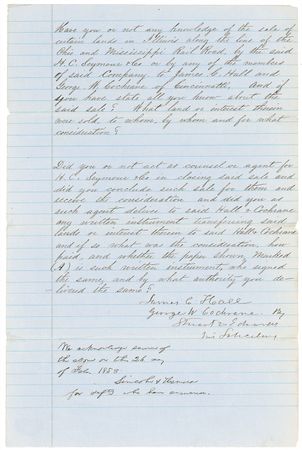 Have you or not any knowledge of the sale of
certain lands in Illinois along the line of the
Ohio and Mississippi Rail Road, by the said
H. C. Seymour & Co or by any of the members
of said Company to James C. Hall and
George W. Cochrane of Cincinnatti, And if
you have state all you know about
said sale? What land or interest therein
was sold, to whom, by whom and for what
consideration?
Did you or not act as counsel or agent for
H. C. Seymour & Co in closing said sale and
did you conclude such sale for them and
receive the consideration and did you as
such agent deliver to said Hall & Cochrane
any written instrument conveying said
lands or interest therein to said Hall & Cochrane
and if so what was the consideration, how
paid, and whether the paper shown, Marked
(A) is such written instrument, who signed
the same, and by what authority you de-
livered the same?
James C Hall
George W Cochrane By
Stuart & Edwards
Solicitors
We acknowledge service of
the above on this 26 day
of Feb. 1858
Lincoln & Herndon
for